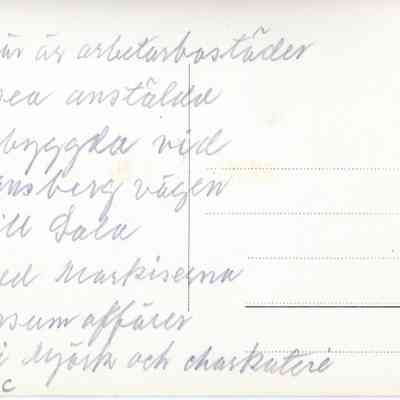 är arbetarbostäder
anställde
byggda vid
nsberg vägen
ill Sala
ed Markiserna
sum affärer
i Mjölk och charkuteri
c